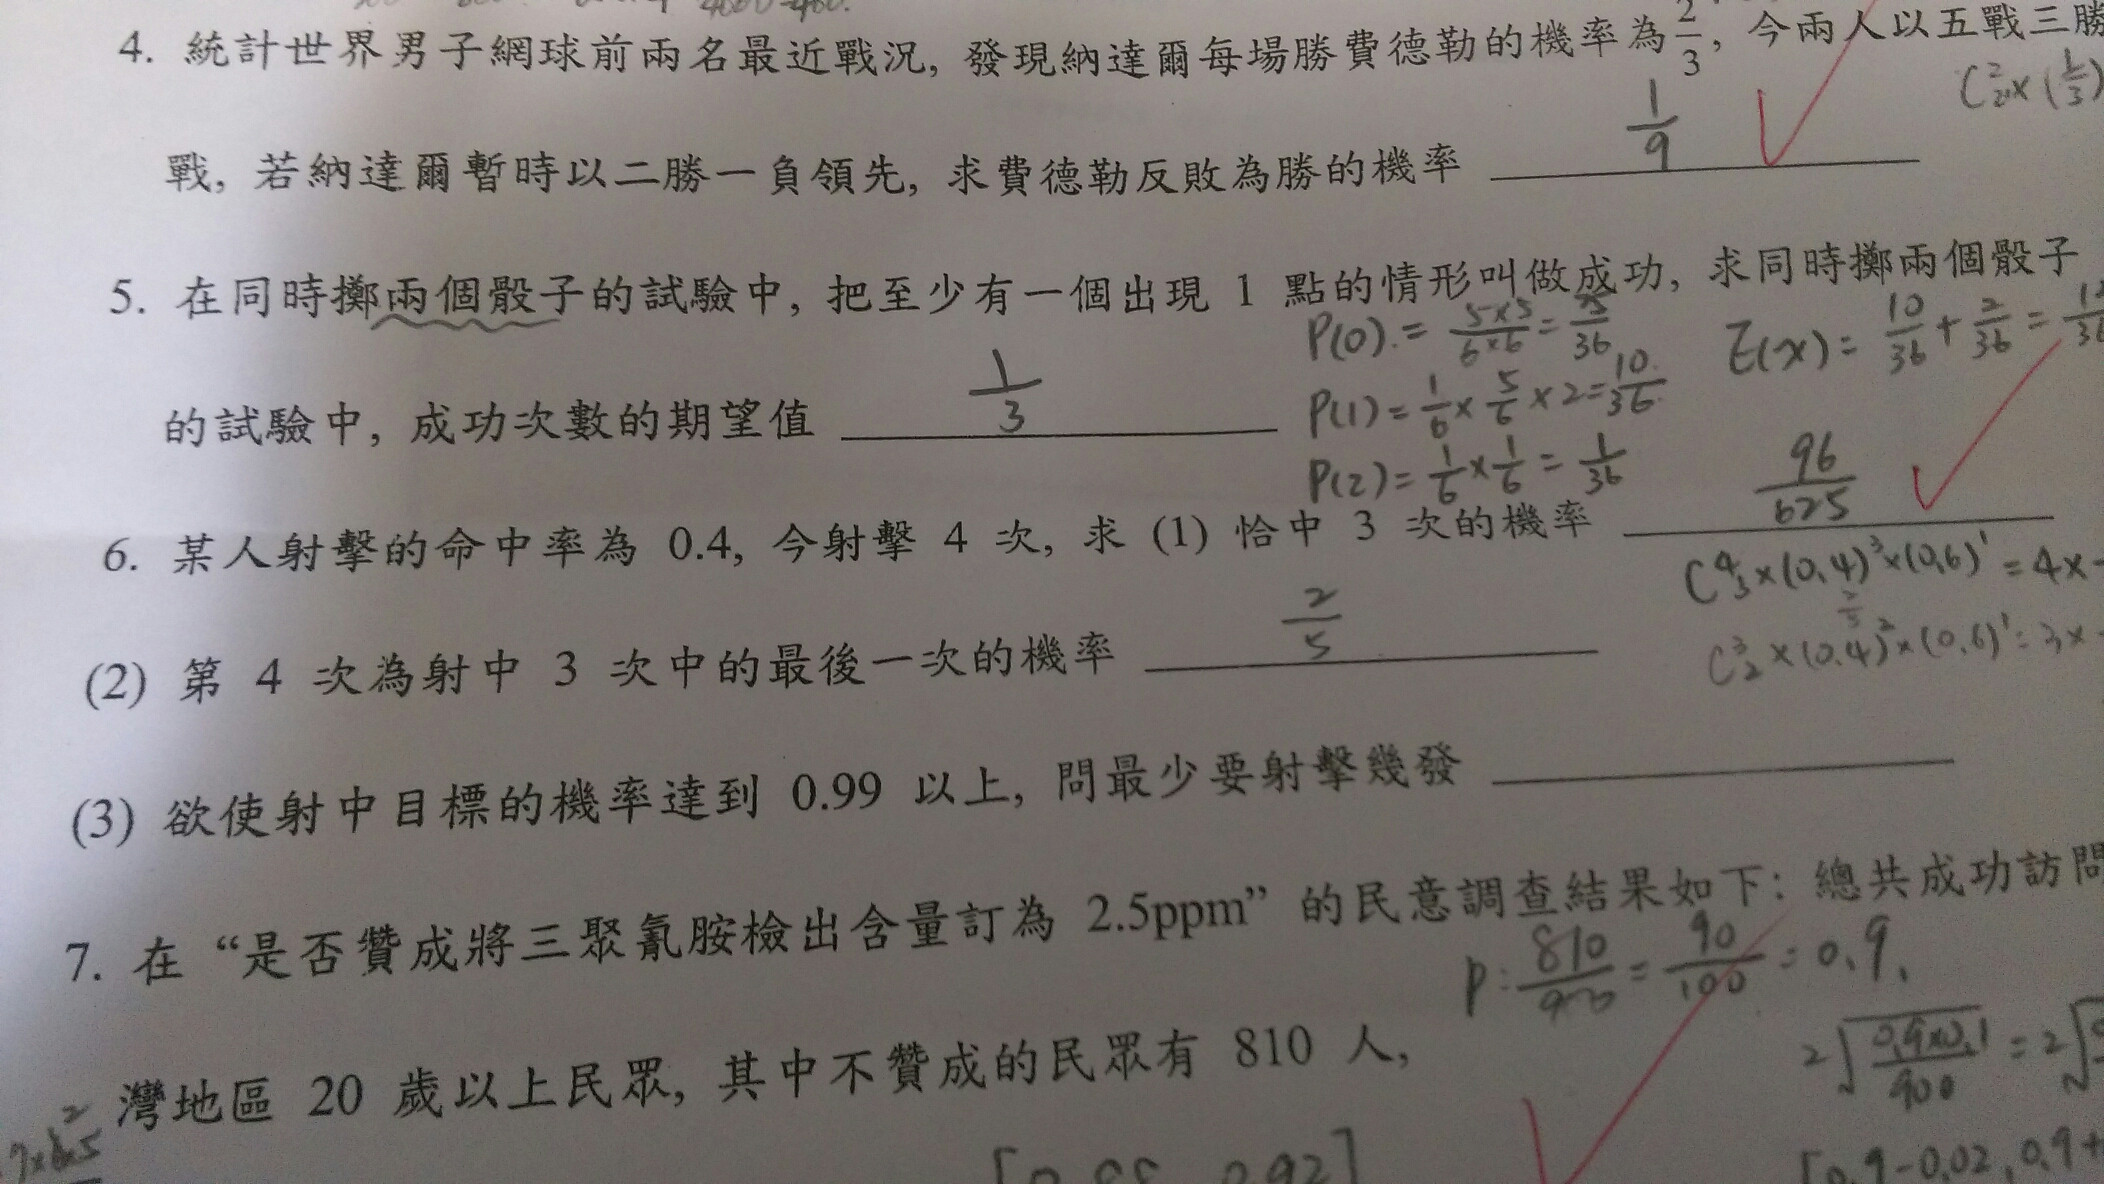 4. 統計世界男子網球前兩名最近戰況, 發現納達爾每場勝費德勒的機率為 2/3, 今兩人以五戰三勝
C²₂×(1/3)
戰, 若納達爾暫時以二勝一負領先, 求費德勒反敗為勝的機率 1/9
5. 在同時擲兩個骰子的試驗中, 把至少有一個出現 1 點的情形叫做成功, 求同時擲兩個骰子
P(0) = 5×5/6×6 = 25/36
E(x) = 10/36 + 2/36 = 12/36
的試驗中, 成功次數的期望值 1/3
P(1) = 1/6 × 5/6 × 2 = 10/36
P(2) = 1/6 × 1/6 = 1/36
6. 某人射擊的命中率為 0.4, 今射擊 4 次, 求 (1) 恰中 3 次的機率 96/625
C⁴₃×(0.4)³×(0.6)¹ = 4×
(2) 第 4 次為射中 3 次中的最後一次的機率 2/5
C³₂×(0.4)²×(0.6)¹ = 3×
(3) 欲使射中目標的機率達到 0.99 以上, 問最少要射擊幾發
7. 在 “是否贊成將三聚氰胺檢出含量訂為 2.5ppm” 的民意調查結果如下: 總共成功訪問
P = 810/900 = 90/100 = 0.9
灣地區 20 歲以上民眾, 其中不贊成的民眾有 810 人,
2√0.9×0.1/900 = 2√
[0.88, 0.92]
[0.9-0.02, 0.9+